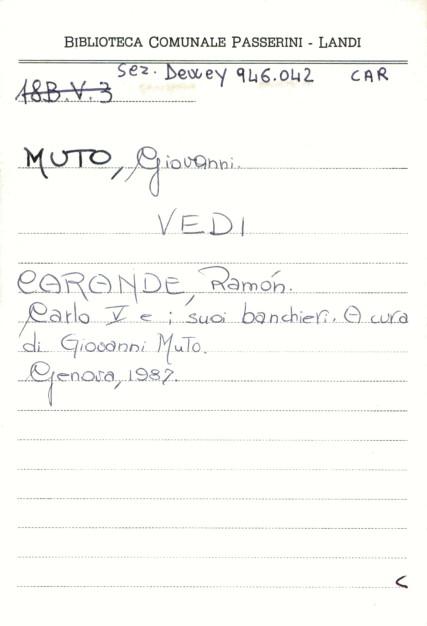 BIBLIOTECA COMUNALE PASSERINI - LANDI
Sez. Dewey 946.042 CAR
18B.V.3
MUTO, Giovanni.
VEDI
CARANDE, Ramón.
Carlo V e i suoi banchieri. A cura
di Giovanni Muto.
Genova, 1987.
C